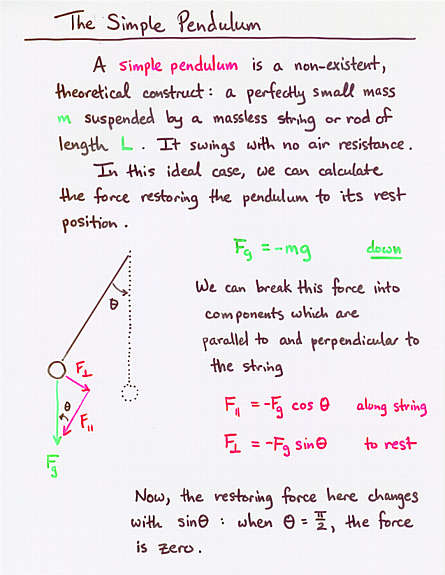 The Simple Pendulum
A simple pendulum is a non-existent,
theoretical construct: a perfectly small mass
m suspended by a massless string or rod of
length L. It swings with no air resistance.
In this ideal case, we can calculate
the force restoring the pendulum to its rest
position.
Fg = -mg down
We can break this force into
components which are
parallel to and perpendicular to
the string
F∥ = -Fg cos θ along string
F⊥ = -Fg sin θ to rest
θ
F⊥
θ
F∥
Fg
Now, the restoring force here changes
with sinθ : when θ = π/2, the force
is zero.